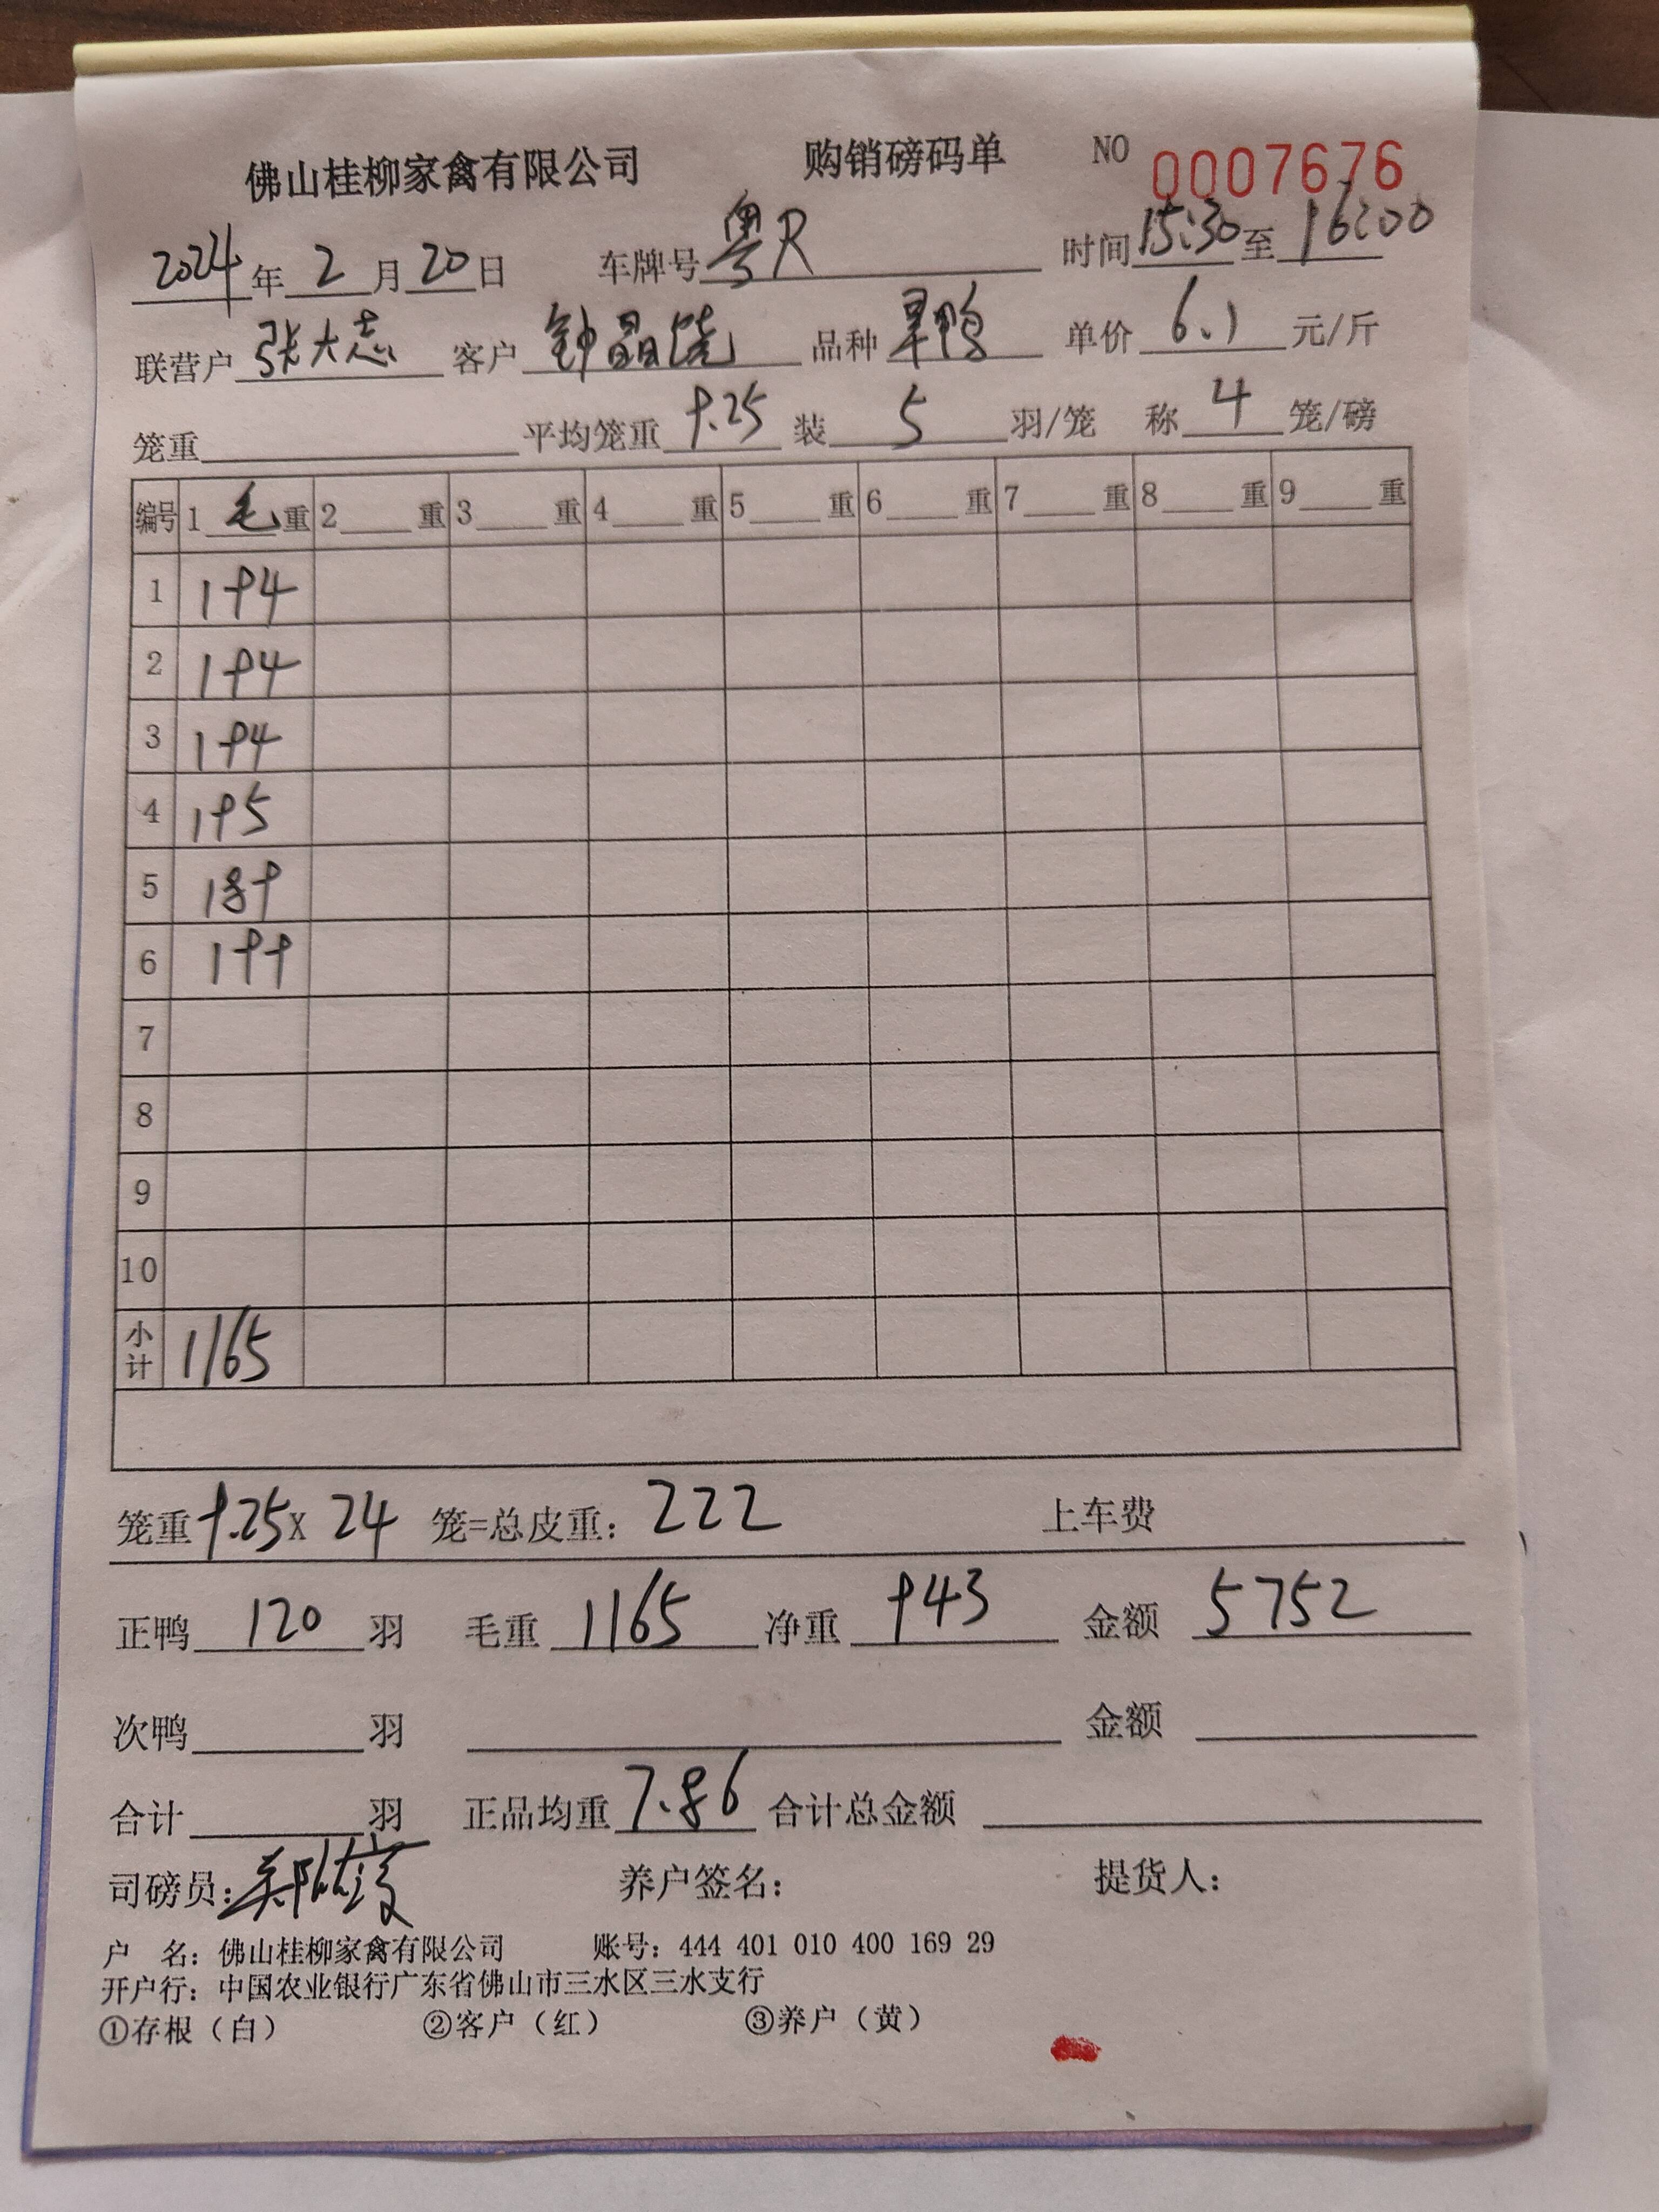 佛山桂柳家禽有限公司 购销磅码单 NO 0007676
2024年2月20日 车牌号粤R 时间15:30至16:00
联营户张大志 客户钟晶 品种旱鸭 单价6.1元/斤
笼重 平均笼重9.25装5羽/笼 称4笼/磅
编号 1毛重 2重 3重 4重 5重 6重 7重 8重 9重
1 194
2 194
3 194
4 195
5 189
6 199
7
8
9
10
小计 1165
笼重9.25X24笼=总皮重:222 上车费
正鸭120羽 毛重1165净重943 金额5752
次鸭羽 金额
合计羽 正品均重7.86合计总金额
司磅员:郑 养户签名: 提货人:
户 名:佛山桂柳家禽有限公司 账号:444 401 010 400 169 29
开户行:中国农业银行广东省佛山市三水区三水支行
①存根(白) ②客户(红) ③养户(黄)